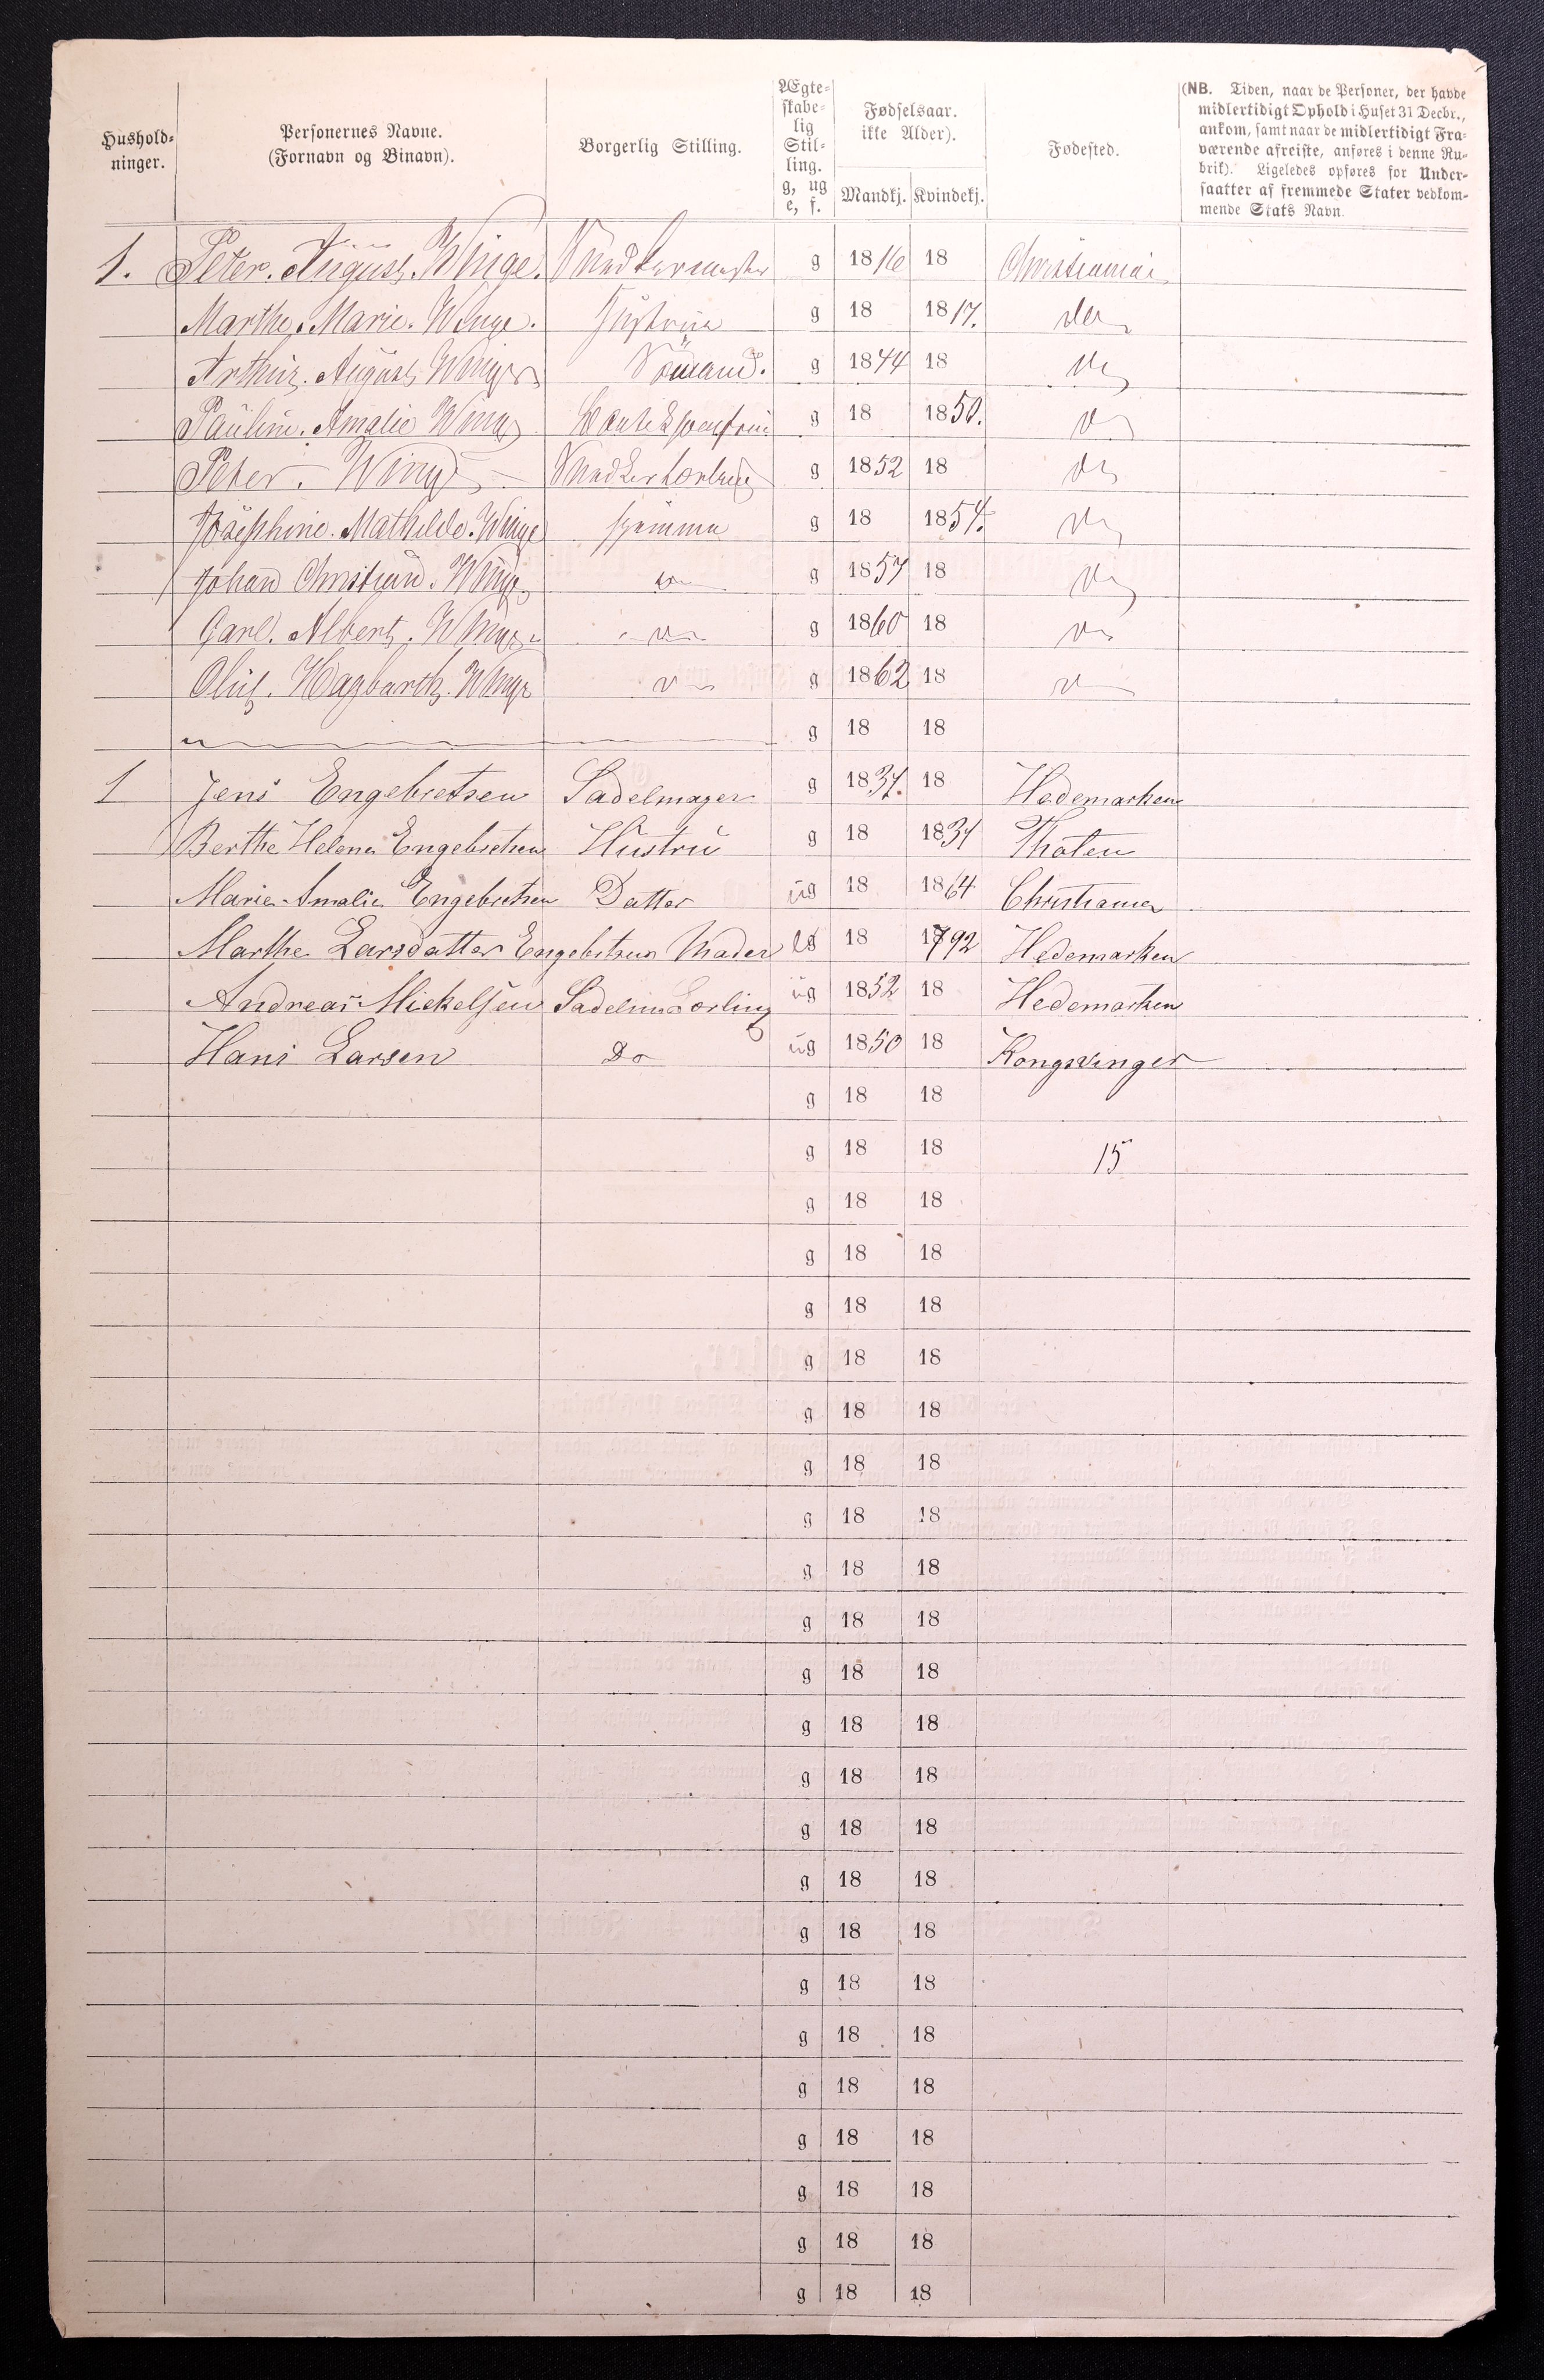 Hushold-
ninger.
Personernes Navne.
(Fornavn og Binavn).
Borgerlig Stilling.
Ægte-
skabe-
lig
Stil-
ling.
g, ug
e, f.
Fødselsaar.
ikke Alder).
Mandkj. Kvindekj.
Fødested.
(NB. Tiden, naar de Personer, der havde
midlertidigt Ophold i Huset 31 Decbr.,
ankom, samt naar de midlertidigt Fra-
værende afreiste, anføres i denne Ru-
brik). Ligeledes opføres for Under-
saatter af fremmede Stater vedkom-
mende Stats Navn.
1. Peter. August. Winge. Snedkermester g 1816 18 Christiania
Marthe. Marie. Winge. Hustrue g 18 1817. do
Arthur. August. Winge Sömand. g 1844 18 do
Pauline. Amalie Winge g 18 1850. do
Peter. Winge Snedkerlærling g 1852 18 do
Josephine. Mathilde. Winge hjemme g 18 1854. do
Johan Christian. Winge do g 1857 18 do
Carl. Albert. Winge do g 1860 18 do
Oluf. Hagbarth. Winge do g 1862 18 do
g 18 18
1 Jens Engebretsen Sadelmager g 1834. 18 Hedemarken
Berthe Helene Engebretsen Hustru g 18 1834 Thoten
Marie Amalie Engebretsen Datter ug 18 1864 Christiania
Marthe Larsdatter Engebretsen Moder 18 1792 Hedemarken
Andreas Mickelsen Sadelm Lærling ug 1852 18 Hedemarken
Hans Larsen Do ug 1850 18 Kongsvinger
g 18 18
g 18 18 15
g 18 18
g 18 18
g 18 18
g 18 18
g 18 18
g 18 18
g 18 18
g 18 18
g 18 18
g 18 18
g 18 18
g 18 18
g 18 18
g 18 18
g 18 18
g 18 18
g 18 18
g 18 18
g 18 18
g 18 18
g 18 18
g 18 18